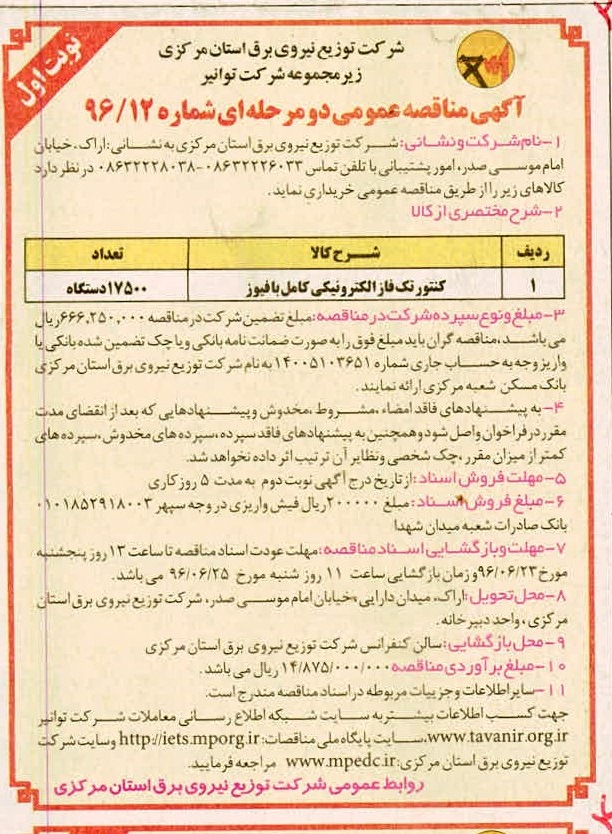 نوبت اول
شرکت توزیع نیروی برق استان مرکزی
زیر مجموعه شرکت توانیر
آگهی مناقصه عمومی دو مرحله ای شماره ۹۶/۱۲
۱-نام شرکت و نشانی: شرکت توزیع نیروی برق استان مرکزی به نشانی: اراک، خیابان
امام موسی صدر، امور پشتیبانی با تلفن تماس ۰۸۶۳۲۲۲۶۰۳۳-۰۸۶۳۲۲۲۸۰۳۸ در نظر دارد
کالاهای زیر را از طریق مناقصه عمومی خریداری نماید.
۲-شرح مختصری از کالا
ردیف شرح کالا تعداد
۱ کنتور تک فاز الکترونیکی کامل با فیوز ۱۷۵۰۰دستگاه
۳-مبلغ و نوع سپرده شرکت در مناقصه: مبلغ تضمین شرکت در مناقصه ۶۶۶,۲۵۰,۰۰۰ریال
می باشد، مناقصه گران باید مبلغ فوق را به صورت ضمانت نامه بانکی و یا چک تضمین شده بانکی یا
واریز وجه به حساب جاری شماره ۱۴۰۰۵۱۰۳۶۵۱ به نام شرکت توزیع نیروی برق استان مرکزی
بانک مسکن شعبه مرکزی ارائه نمایند.
۴-به پیشنهادهای فاقد امضاء، مشروط، مخدوش و پیشنهادهایی که بعد از انقضای مدت
مقرر در فراخوان واصل شود و همچنین به پیشنهادهای فاقد سپرده، سپرده های مخدوش، سپرده های
کمتر از میزان مقرر، چک شخصی و نظایر آن ترتیب اثر داده نخواهد شد.
۵-مهلت فروش اسناد: از تاریخ درج آگهی نوبت دوم به مدت ۵ روز کاری
۶-مبلغ فروش اسناد: مبلغ ۲۰۰۰۰۰ریال فیش واریزی در وجه سپهر ۰۱۰۱۸۵۲۹۱۸۰۰۳
بانک صادرات شعبه میدان شهدا
۷-مهلت و بازگشایی اسناد مناقصه: مهلت عودت اسناد مناقصه تا ساعت ۱۳ روز پنجشنبه
مورخ ۹۶/۰۶/۲۳ و زمان بازگشایی ساعت ۱۱ روز شنبه مورخ ۹۶/۰۶/۲۵ می باشد.
۸-محل تحویل: اراک، میدان دارایی، خیابان امام موسی صدر، شرکت توزیع نیروی برق استان
مرکزی، واحد دبیرخانه.
۹-محل بازگشایی: سالن کنفرانس شرکت توزیع نیروی برق استان مرکزی
۱۰-مبلغ برآوردی مناقصه ۱۴/۸۷۵/۰۰۰/۰۰۰ ریال می باشد.
۱۱-سایر اطلاعات و جزییات مربوطه در اسناد مناقصه مندرج است.
جهت کسب اطلاعات بیشتر به سایت شبکه اطلاع رسانی معاملات شرکت توانیر
www.tavanir.org.ir، سایت پایگاه ملی مناقصات: http://iets.mporg.ir و سایت شرکت
توزیع نیروی برق استان مرکزی: www.mpedc.ir مراجعه فرمایید.
روابط عمومی شرکت توزیع نیروی برق استان مرکزی